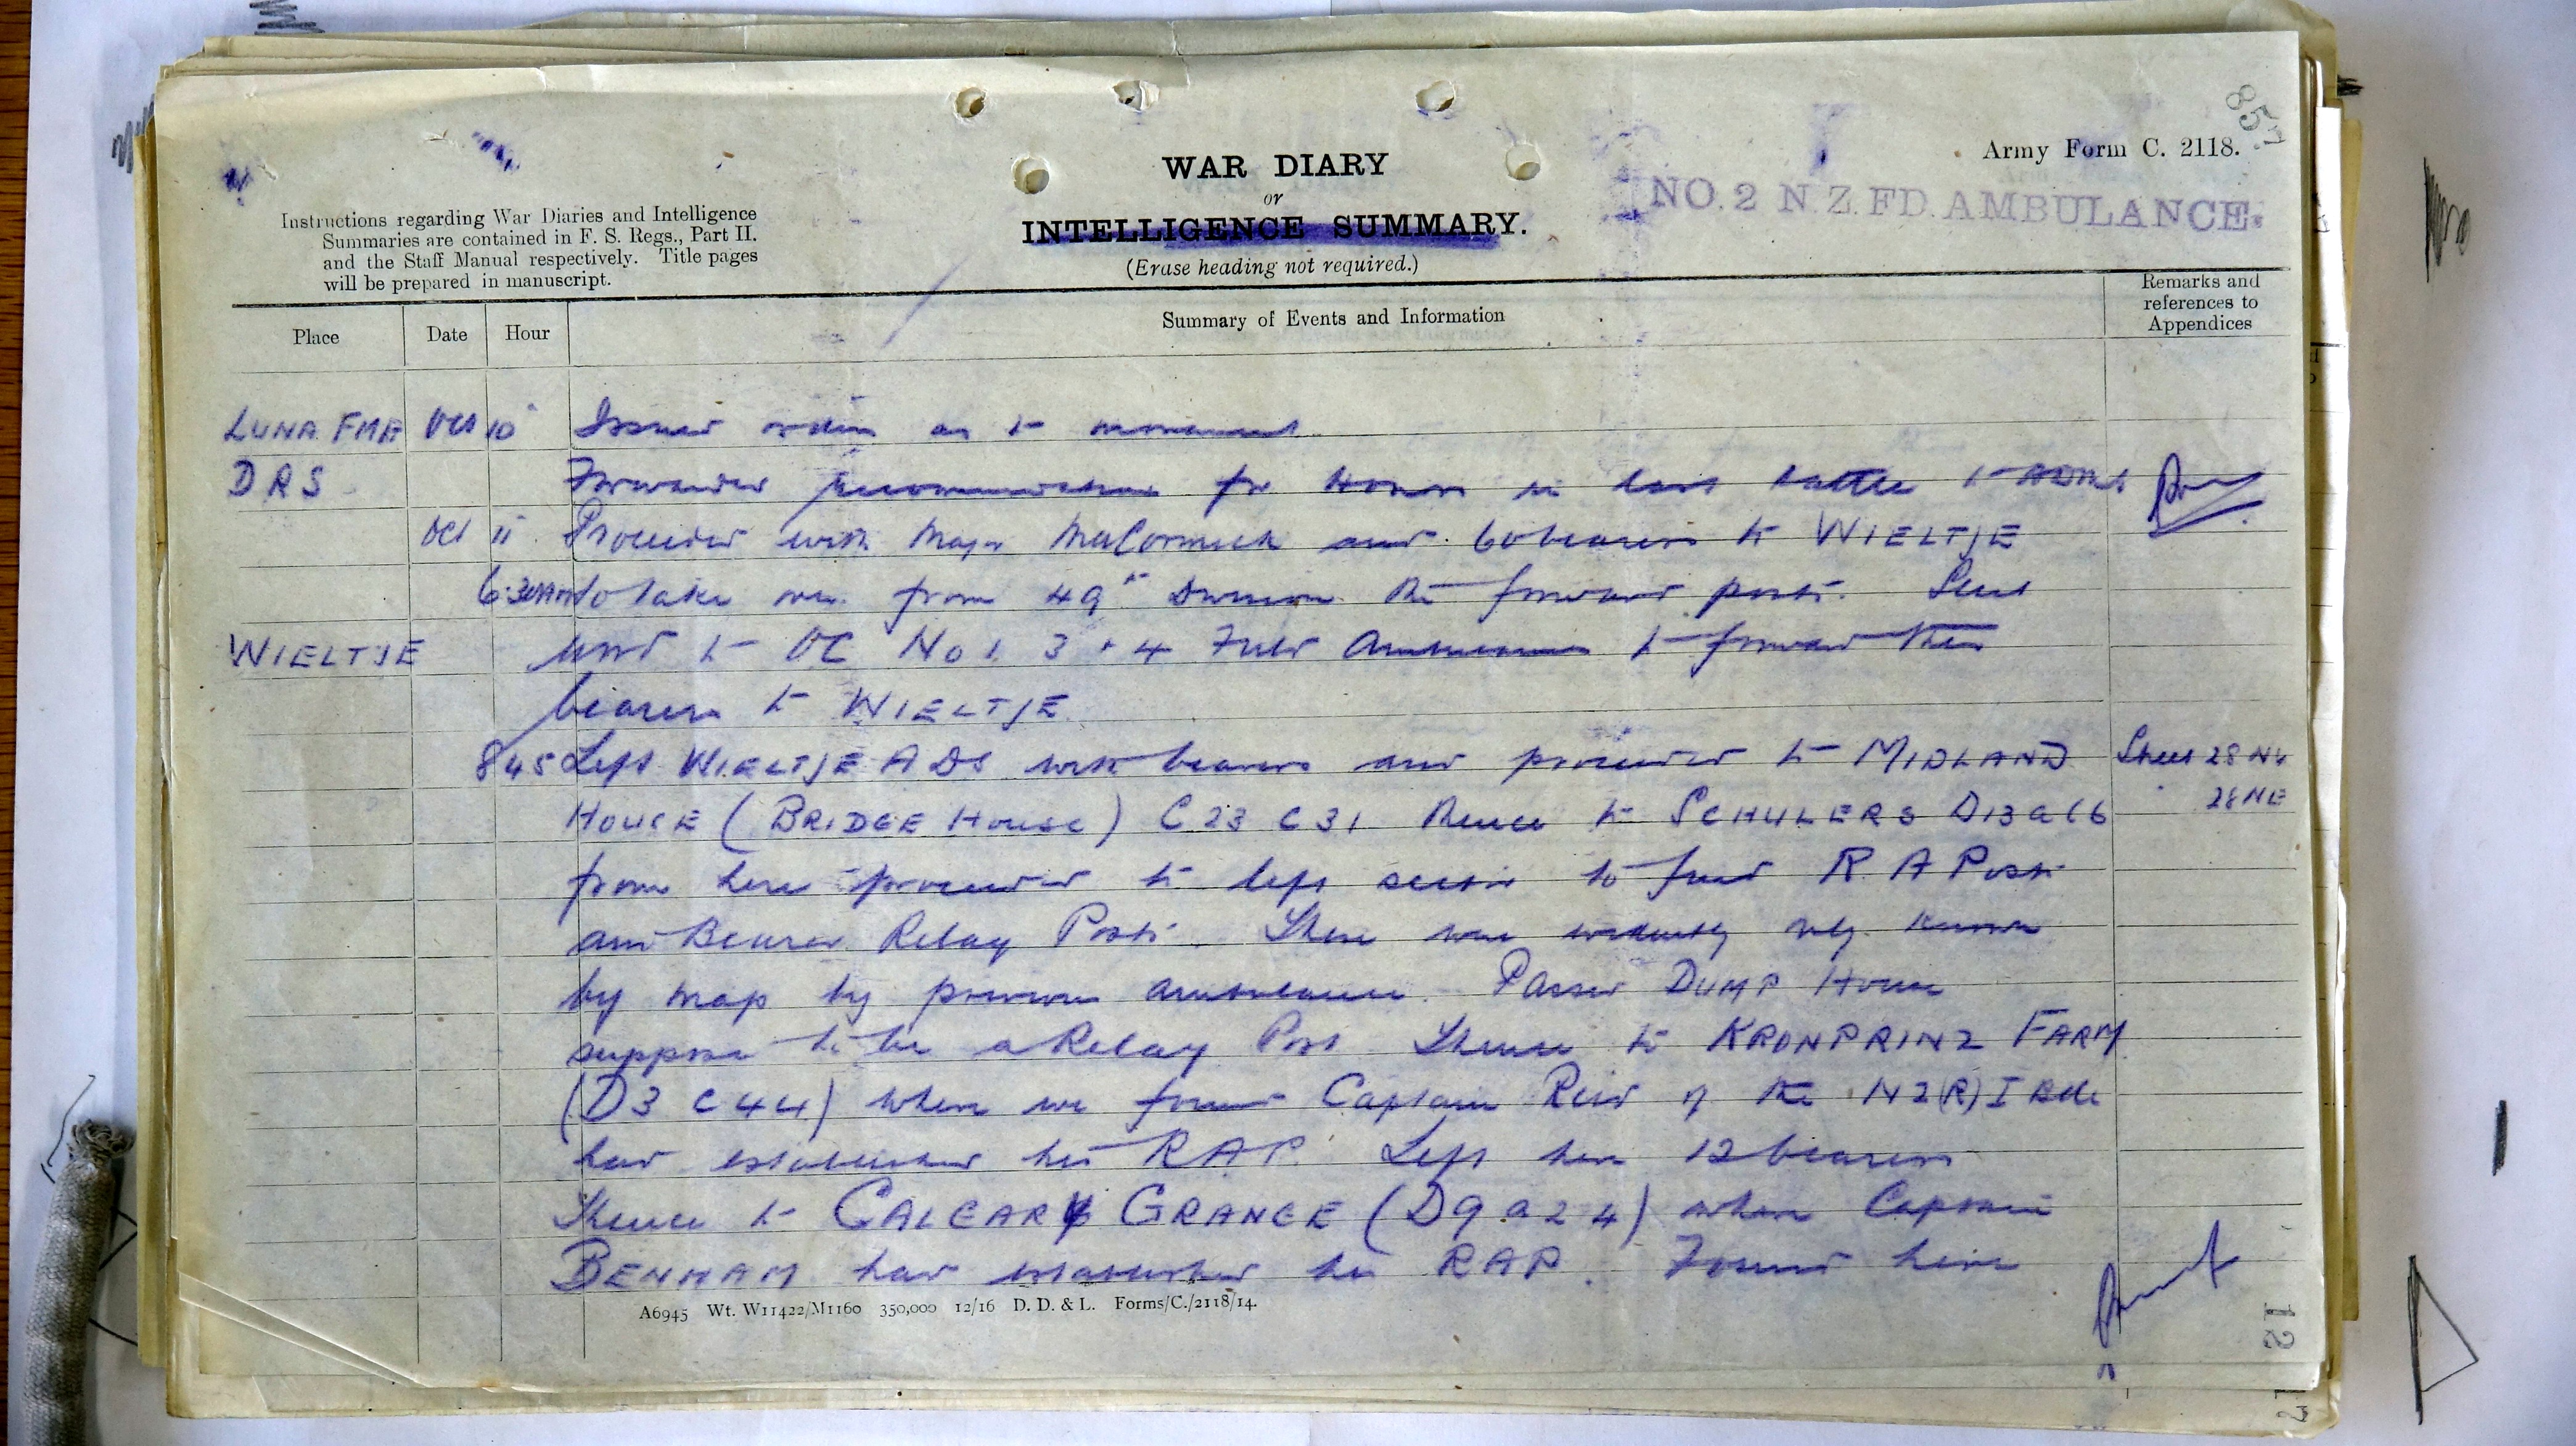 857
Army Form C. 2118.
NO. 2 N. Z. FD. AMBULANCE.
WAR DIARY
or
INTELLIGENCE SUMMARY.
(Erase heading not required.)
Instructions regarding War Diaries and Intelligence
Summaries are contained in F. S. Regs., Part II.
and the Staff Manual respectively. Title pages
will be prepared in manuscript.
Place Date Hour Summary of Events and Information Remarks and references to Appendices
LUNA FME Oct 10 Issued orders as to movement
DRS Forwarded recommendations for Honors in last battle to ADMS
Oct 11 Proceeded with Major McCormick and 60 bearers to WIELTJE
6.30AM to take over from 49th Division the forward posts. Sent
WIELTJE word to OC No 1. 3 + 4 Field Ambulances to forward their
bearers to WIELTJE
845 Left WIELTJE ADS with bearers and proceeded to MIDLAND Sheet 28 NW
HOUSE (BRIDGE HOUSE) C23 C31 thence to SCHULERS D13 a 66 28 NE
from here proceeded to left sector to find R. A Posts
and Bearer Relay Posts. These were evidently only known
by map by previous ambulance. Passed DUMP House
suppose to be a Relay Post Thence to KRONPRINZ FARM
(D3 C44) where we found Captain Reid of the NZ(R)I Bde
had established his RAP. Left here 12 bearers
Thence to CALGARY GRANGE (D9 a 24) where Captain
BENHAM had established his RAP. Found here
A6945 Wt. W11422/M1160 350,000 12/16 D. D. & L. Forms/C./2118/14.
12
17